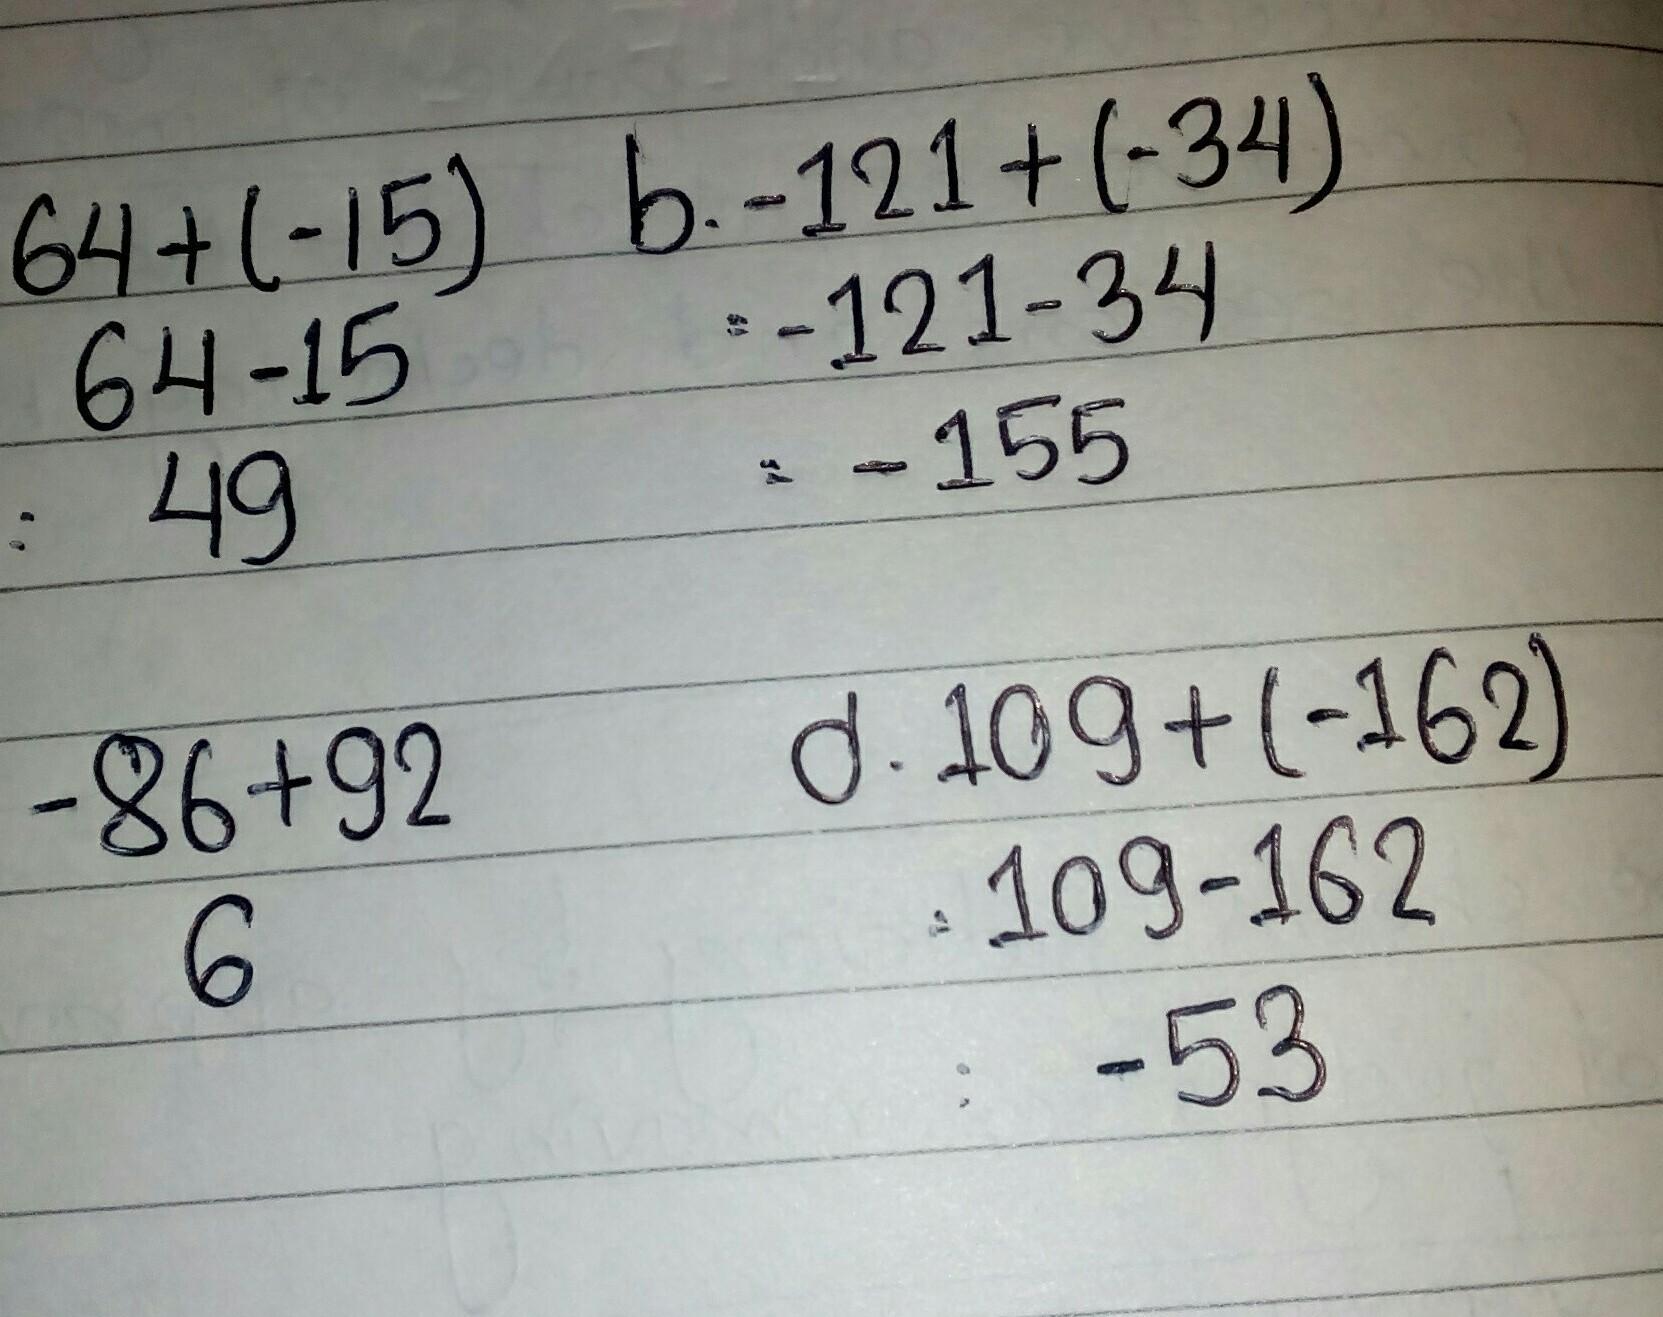 64+(-15)
64-15
: 49
b. -121+(-34)
= -121-34
= -155
-86+92
6
d. 109+(-162)
= 109-162
: -53